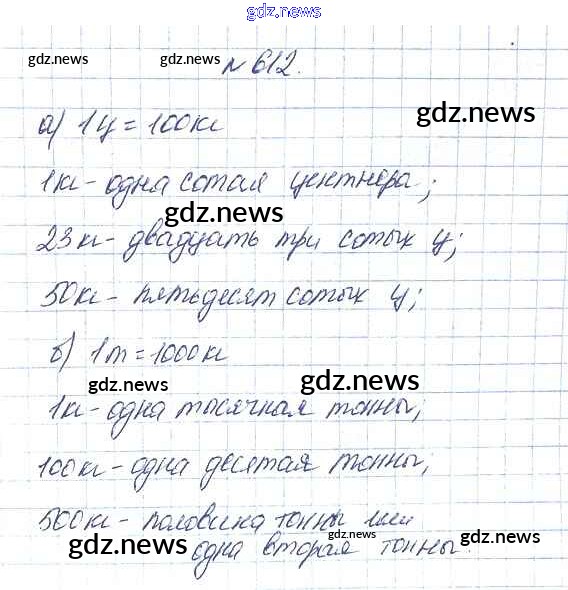 gdz.news
gdz.news gdz.news
№ 612.
gdz.news
а) 1 ц = 100 кг
1 кг - одна сотая центнера;
gdz.news
23 кг - двадцать три сотых ц;
50 кг - пятьдесят сотых ц;
б) 1 т = 1000 кг
gdz.news gdz.news
1 кг - одна тысячная тонны;
100 кг - одна десятая тонны;
500 кг - половина тонны или
gdz.news gdz.news
одна вторая тонны.